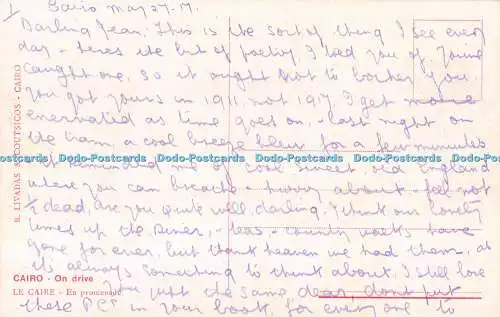 1
Cairo May 27 - 17.
Darling Jean, This is the sort of thing I see every
day - here's the bit of poetry I told you of. You've
caught one, so it ought not to bother you.
You got yours in 1911, not 1917. I get more
enervated as time goes on, - last night on
the tram, a cool breeze blew for a few minutes
it reminded me of cool sweet old England
where you can breathe - hurry about - feel not
½ dead, are you quite well, darling. I think our lovely
times up the River, - teas - country walks have
gone for ever, but thank heaven we had them, as
it's always something to think about. I still love
you just the same dear, don't put
these PCs in your book, for every one to
S. LIVADAS & COUTSICOS - CAIRO
CAIRO - On drive
LE CAIRE - En promenade
Dodo-Postcards Dodo-Postcards Dodo-Postcards Dodo-Postcards Dodo-Postcards